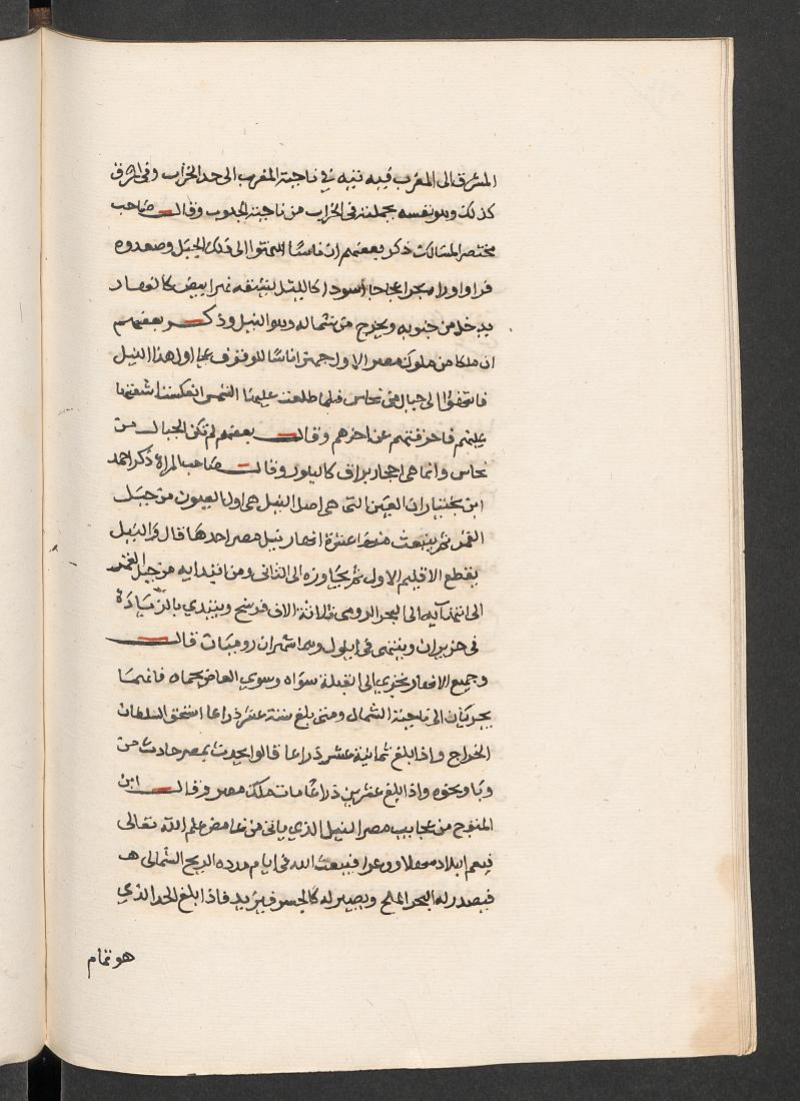 المشرق الى المغرب فيه تيه في ناحية المغرب الى حد الخراب وفي الشرق
كذلك وهو نفسه بجملته في الخراب من ناحية الجنوب وقال صاحب
مختصر المسالك ذكر بعضهم ان ناسا انتهوا الى ذلك الجبل وصعدوه
فراوا ورا بحرا عجاجا اسودا كالليل يشقه نهر ابيض كالنهار
يدخل من جنوبه ويخرج من شماله وهو النيل وذكر بعضهم
ان ملكا من ملوك مصر الاول جهز اناسا للوقوف على اول هذا النيل
فانتهوا الى جبال من نحاس فلما طلعت عليها الشمس انعكست اشعتها
عليهم فاحرقتهم عن اخرهم وقال بعضهم لم تكن الجبال من
نحاس وانما هي احجار براق كالبلور وقال صاحب المراة ذكر احمد
ابن بختيار ان العين التي هي اصل النيل هي اول العيون من جبل
القمر ثم ينبعث منها عشرة انهار نيل مصر احدها قال والنيل
يقطع الاقليم الاول ثم يجاوزه الى الثاني ومن ابتدايه من جبل القمر
الى انتهايه الى البحر الرومي ثلاثة الاف فرسخ ويبتدي بالزيادة
في حزيران وينتهي في ايلول وهما شهران روميان قال
وجميع الانهار تجري الى القبلة سواه وسوي العاص بحماه فانهما
يجريان الى ناحية الشمال ومتى بلغ ستة عشر ذراعا استحق السلطان
الخراج واذا بلغ ثمانية عشر ذراعا قالوا يحدث بمصر حادث من
وبا ونحوه واذا بلغ عشرين ذراعا مات ملك مصر وقال ابن
المنوج من عجايب مصر النيل الذي ياتي من غامض علم الله تعالى
فيعم البلاد سهلا ووعرا فيبعث الله في ايام مدده الريح الشمالي
فيصدر له البحر الملح ويصير له كالجسر فيزيد فاذا بلغ الحد الذي
هو تمام